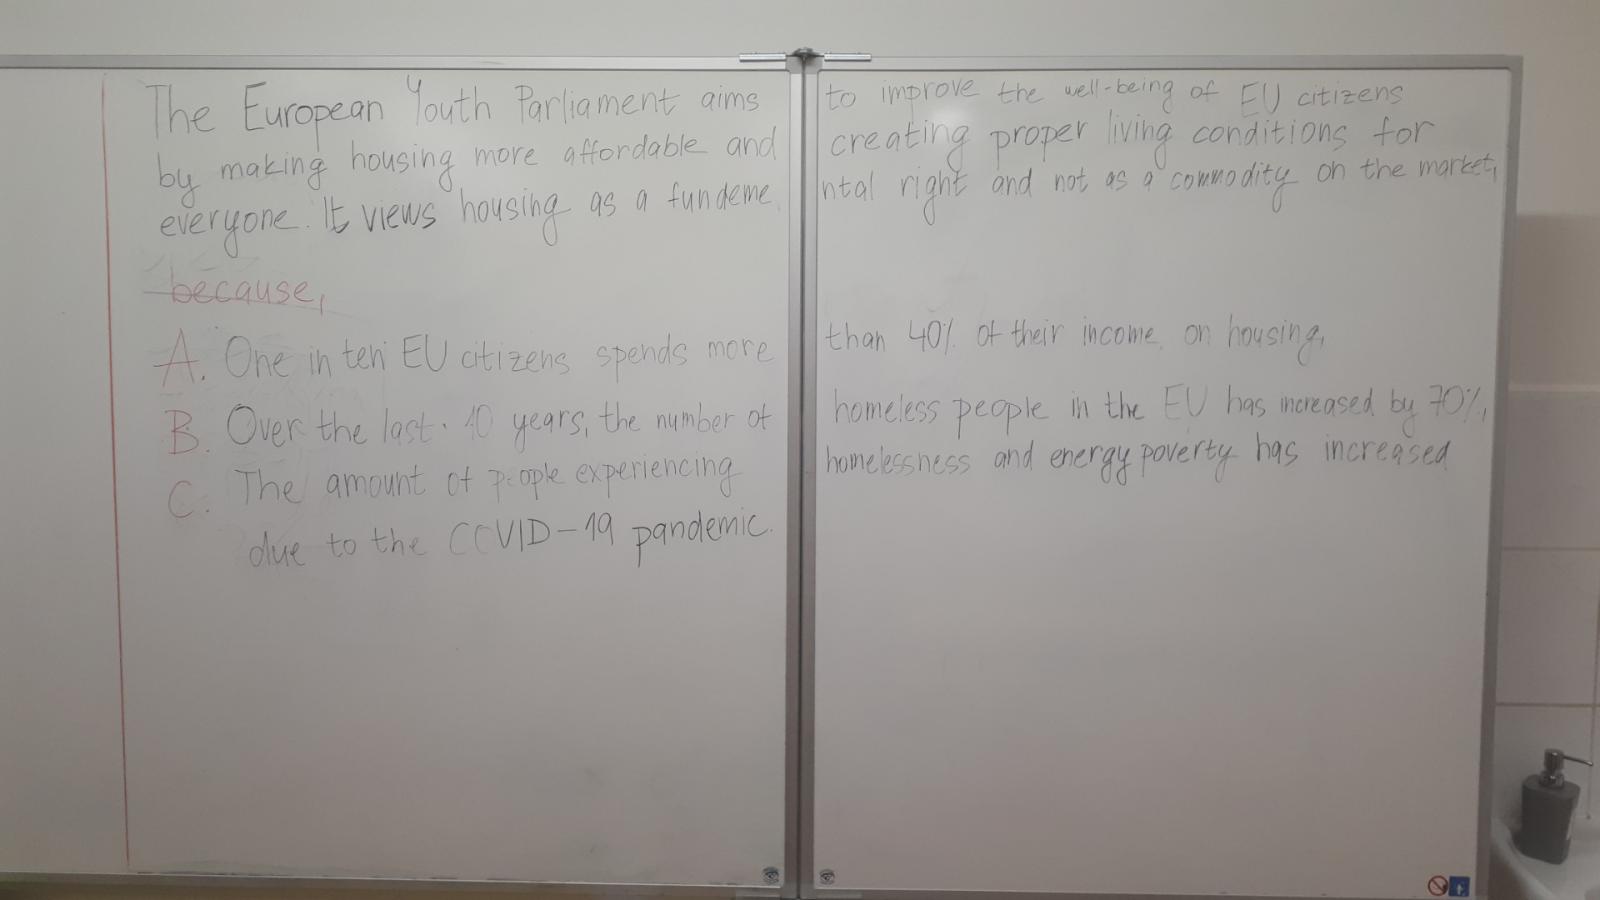 The European Youth Parliament aims to improve the well-being of EU citizens
by making housing more affordable and creating proper living conditions for
everyone. It views housing as a fundemental right and not as a commodity on the market,
because,
A. One in ten EU citizens spends more than 40% of their income on housing,
B. Over the last 10 years, the number of homeless people in the EU has increased by 70%,
C. The amount of people experiencing homelessness and energy poverty has increased
due to the COVID-19 pandemic.